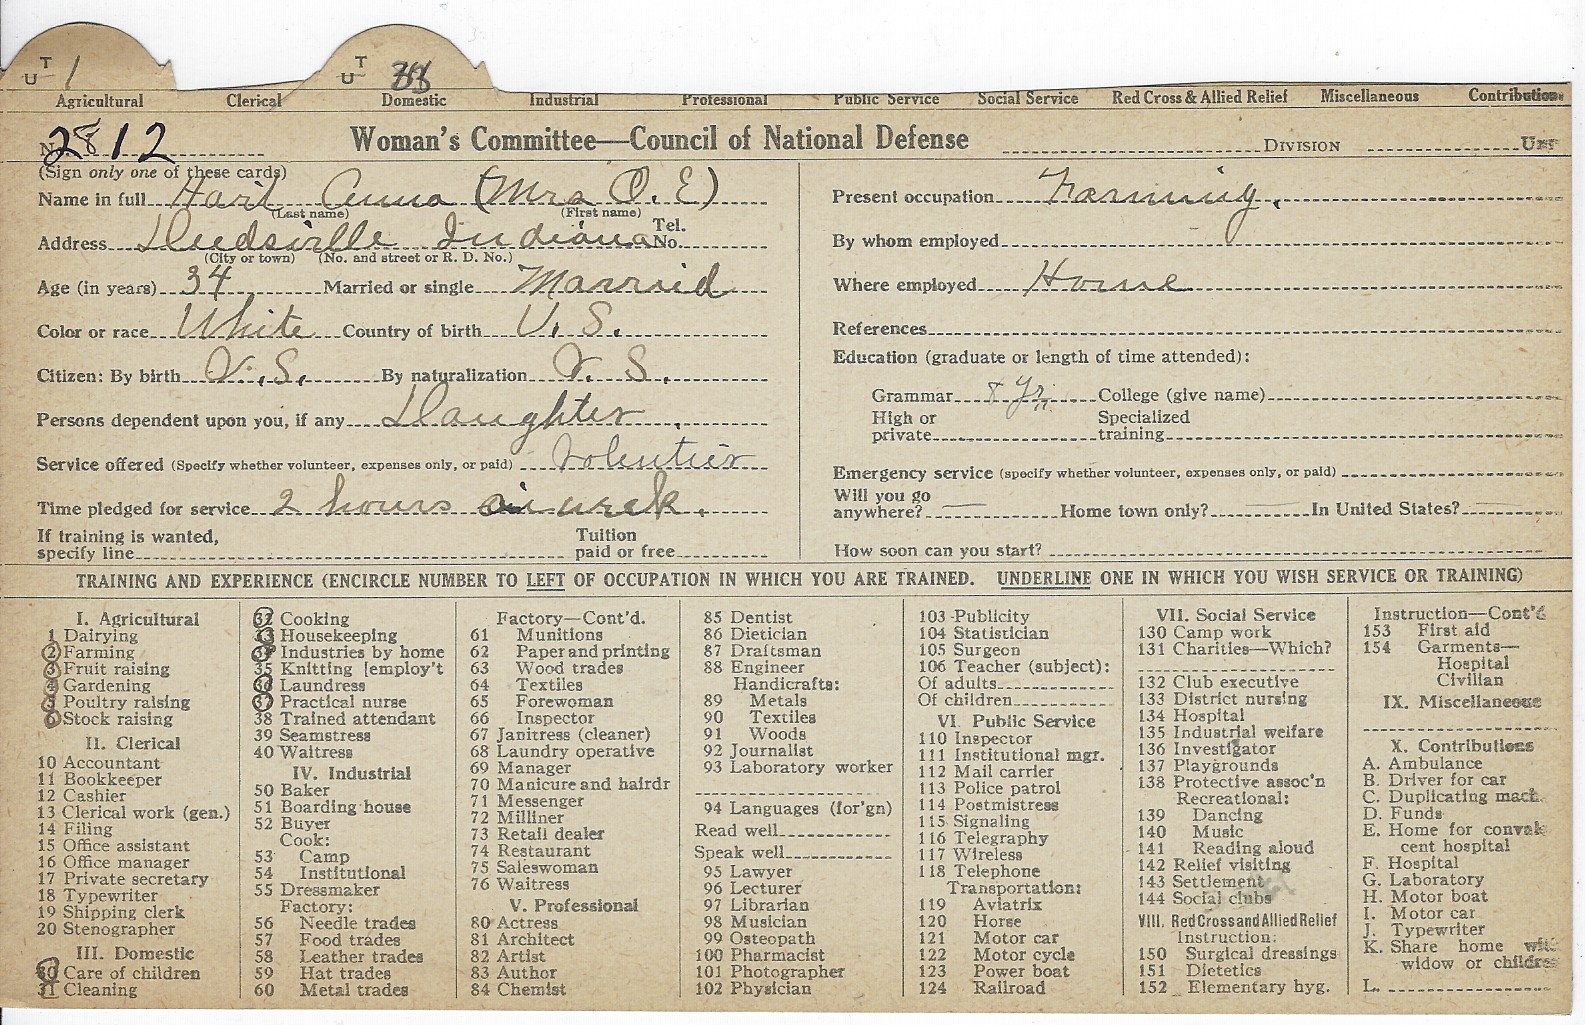 T U 1
T U 33
Agricultural Clerical Domestic Industrial Professional Public Service Social Service Red Cross & Allied Relief Miscellaneous Contributions
No. 2812 Woman's Committee—Council of National Defense DIVISION
(Sign only one of these cards)
Name in full Hart Anna (Mrs O. E)
(Last name) (First name)
Address Deedsville Indiana Tel. No.
(City or town) (No. and street or R. D. No.)
Age (in years) 34 Married or single Married
Color or race White Country of birth U. S.
Citizen: By birth U. S. By naturalization U. S.
Persons dependent upon you, if any Daughter
Service offered (Specify whether volunteer, expenses only, or paid) Volentier
Time pledged for service 2 hours a week.
If training is wanted,
specify line Tuition paid or free
Present occupation Farming.
By whom employed
Where employed Home
References
Education (graduate or length of time attended):
Grammar 8 yr. College (give name)
High or private Specialized training
Emergency service (specify whether volunteer, expenses only, or paid)
Will you go anywhere? — Home town only? — In United States? —
How soon can you start?
TRAINING AND EXPERIENCE (ENCIRCLE NUMBER TO LEFT OF OCCUPATION IN WHICH YOU ARE TRAINED. UNDERLINE ONE IN WHICH YOU WISH SERVICE OR TRAINING)
I. Agricultural
1 Dairying
2 Farming
3 Fruit raising
4 Gardening
5 Poultry raising
6 Stock raising
II. Clerical
10 Accountant
11 Bookkeeper
12 Cashier
13 Clerical work (gen.)
14 Filing
15 Office assistant
16 Office manager
17 Private secretary
18 Typewriter
19 Shipping clerk
20 Stenographer
III. Domestic
30 Care of children
31 Cleaning
32 Cooking
33 Housekeeping
34 Industries by home
35 Knitting [employ't
36 Laundress
37 Practical nurse
38 Trained attendant
39 Seamstress
40 Waitress
IV. Industrial
50 Baker
51 Boarding house
52 Buyer
Cook:
53 Camp
54 Institutional
55 Dressmaker
Factory:
56 Needle trades
57 Food trades
58 Leather trades
59 Hat trades
60 Metal trades
Factory—Cont'd.
61 Munitions
62 Paper and printing
63 Wood trades
64 Textiles
65 Forewoman
66 Inspector
67 Janitress (cleaner)
68 Laundry operative
69 Manager
70 Manicure and hairdr
71 Messenger
72 Milliner
73 Retail dealer
74 Restaurant
75 Saleswoman
76 Waitress
V. Professional
80 Actress
81 Architect
82 Artist
83 Author
84 Chemist
85 Dentist
86 Dietician
87 Draftsman
88 Engineer
Handicrafts:
89 Metals
90 Textiles
91 Woods
92 Journalist
93 Laboratory worker
94 Languages (for'gn)
Read well
Speak well
95 Lawyer
96 Lecturer
97 Librarian
98 Musician
99 Osteopath
100 Pharmacist
101 Photographer
102 Physician
103 Publicity
104 Statistician
105 Surgeon
106 Teacher (subject):
Of adults
Of children
VI. Public Service
110 Inspector
111 Institutional mgr.
112 Mail carrier
113 Police patrol
114 Postmistress
115 Signaling
116 Telegraphy
117 Wireless
118 Telephone
Transportation:
119 Aviatrix
120 Horse
121 Motor car
122 Motor cycle
123 Power boat
124 Railroad
VII. Social Service
130 Camp work
131 Charities—Which?
132 Club executive
133 District nursing
134 Hospital
135 Industrial welfare
136 Investigator
137 Playgrounds
138 Protective assoc'n
Recreational:
139 Dancing
140 Music
141 Reading aloud
142 Relief visiting
143 Settlement
144 Social clubs
VIII. Red Cross and Allied Relief
Instruction:
150 Surgical dressings
151 Dietetics
152 Elementary hyg.
Instruction—Cont'd
153 First aid
154 Garments—
Hospital
Civilian
IX. Miscellaneous
X. Contributions
A. Ambulance
B. Driver for car
C. Duplicating mach.
D. Funds
E. Home for convales
cent hospital
F. Hospital
G. Laboratory
H. Motor boat
I. Motor car
J. Typewriter
K. Share home with
widow or children
L.